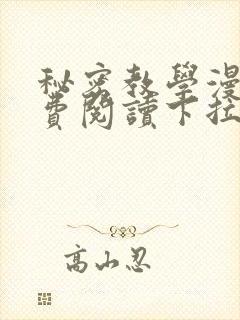 秘密教學漫
費閱讀下拉
高山忍